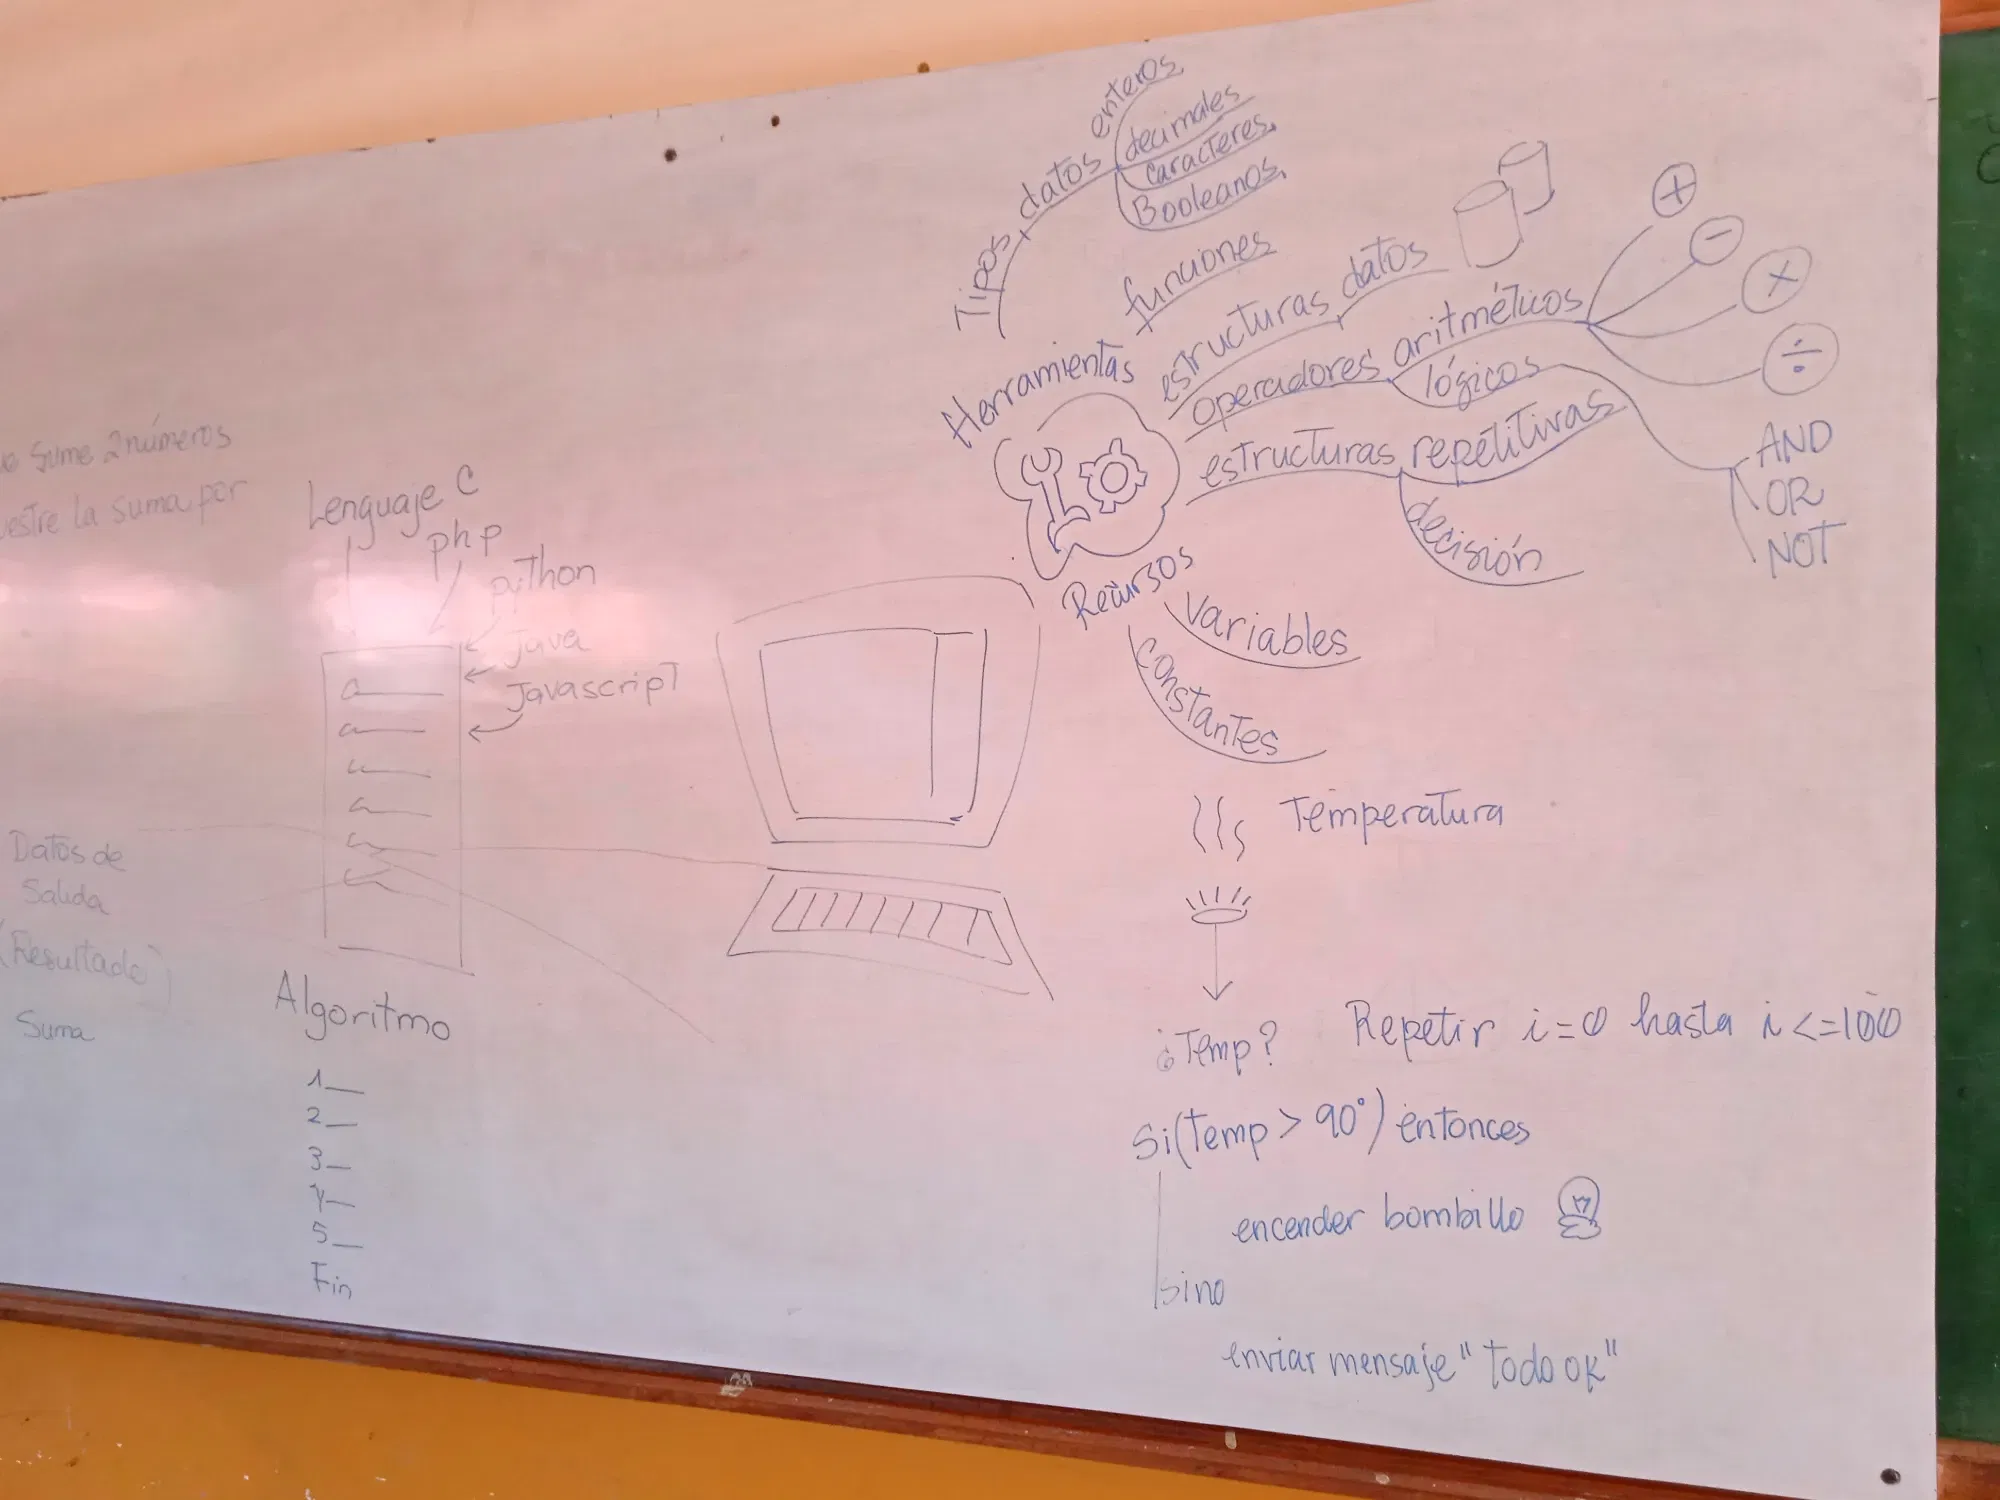 Sume 2 números
la suma por
Datos de
Salida
(Resultado)
Suma
Lenguaje C
php
python
Java
Javascript
Algoritmo
1
2
3
4
5
Fin
Herramientas
Recursos
Tipos datos
enteros
decimales
caracteres
Booleanos
funciones
estructuras datos
operadores aritméticos
+
-
×
÷
lógicos
AND
OR
NOT
estructuras repetitivas
decisión
variables
constantes
Temperatura
¿Temp?
Repetir i=0 hasta i<=100
Si(Temp > 90°) entonces
encender bombillo
sino
enviar mensaje "todo ok"